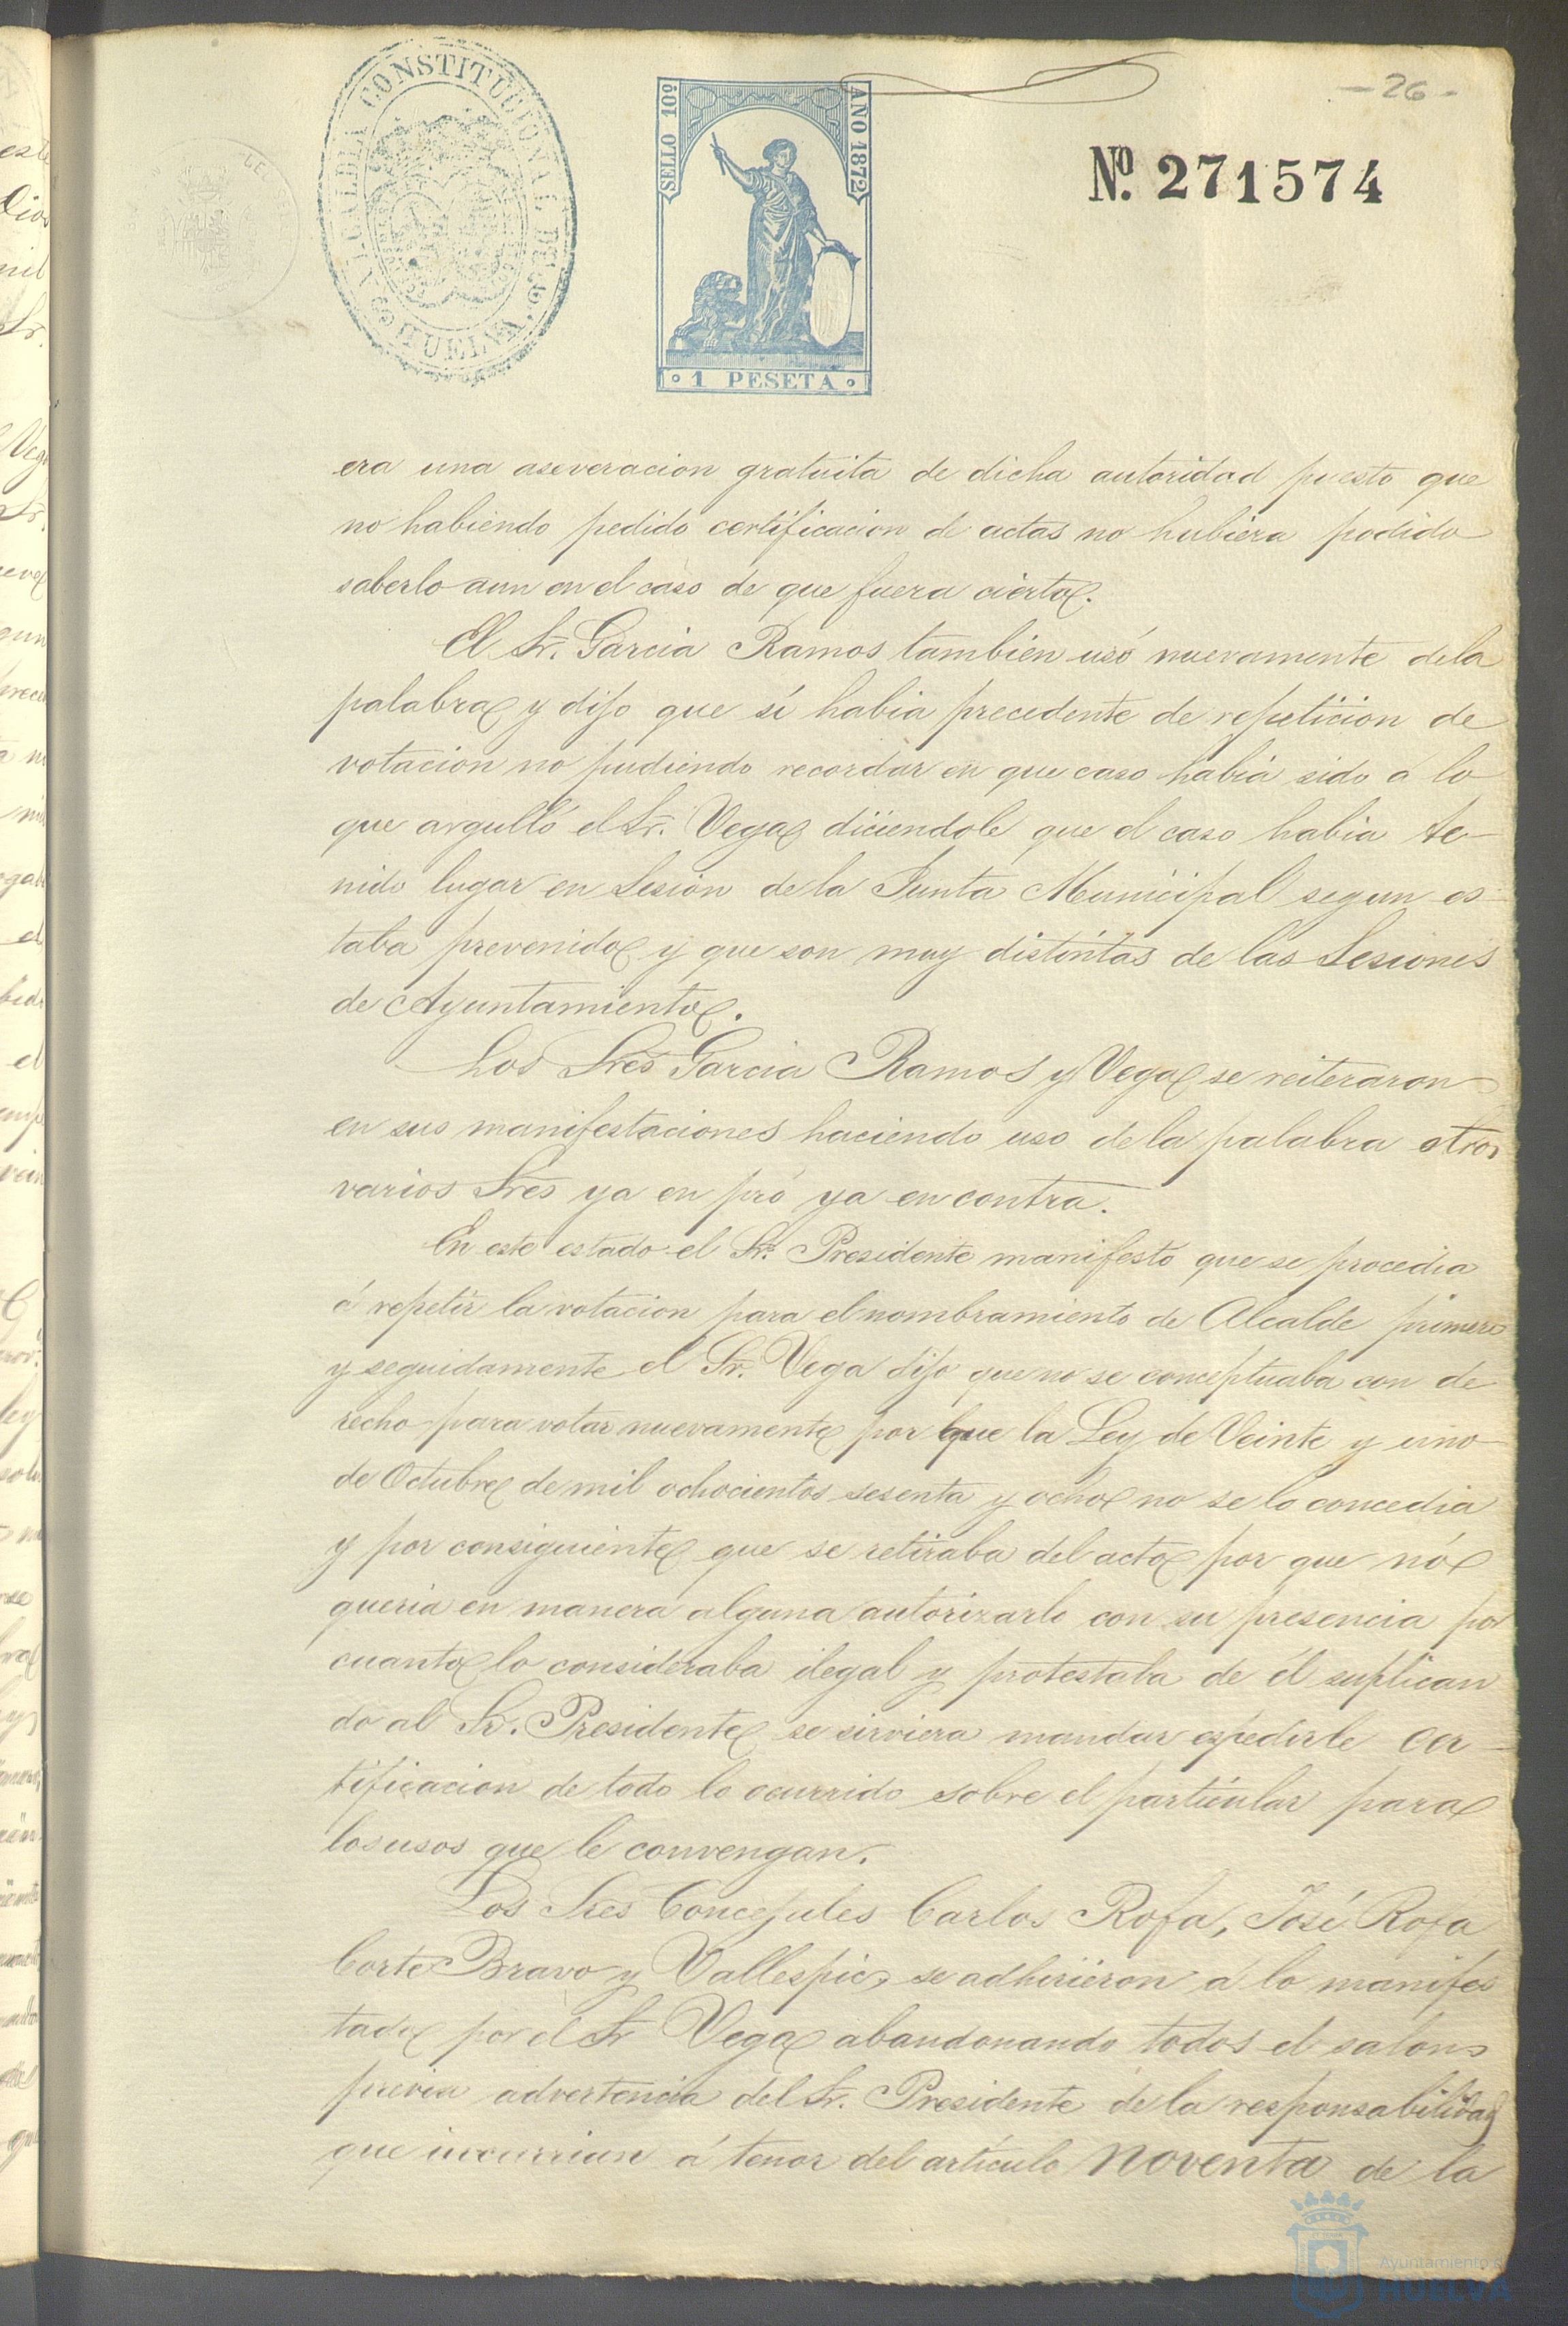 - 26 -
ALCALDIA CONSTITUCIONAL DE HUELVA
SELLO 10º
AÑO 1872
1 PESETA
Nº. 271574
era una aseveracion gratuita de dicha autoridad puesto que
no habiendo pedido certificacion de actas no hubiera podido
saberlo aun en el caso de que fuera cierto.
El Sr. Garcia Ramos tambien usó nuevamente de la
palabra y dijo que sí habia precedente de repeticion de
votacion no pudiendo recordar en que caso habia sido á lo
que argulló el Sr. Vega diciendole que el caso habia te-
nido lugar en Sesion de la Junta Municipal segun es-
taba prevenido y que son muy distintas de las Sesiones
de Ayuntamiento.
Los Sres Garcia Ramos y Vega se reiteraron
en sus manifestaciones haciendo uso de la palabra otros
varios Sres ya en pró ya en contra.
En este estado el Sr. Presidente manifestó que se procedia
á repetir la votacion para el nombramiento de Alcalde primero
y seguidamente el Sr. Vega dijo que no se conceptuaba con de
recho para votar nuevamente por que la Ley de Veinte y uno
de Octubre de mil ochocientos sesenta y ocho no se lo concedia
y por consiguiente que se retiraba del acto por que nó
queria en manera alguna autorizarlo con su presencia por
cuanto lo consideraba ilegal y protestaba de él suplican
do al Sr. Presidente se sirviera mandar espedirle cer-
tificacion de todo lo ocurrido sobre el particular para
los usos que le convengan.
Los Sres Concejales Carlos Rofa, José Rofa
Corte Bravo y Vallespin se adhirieron á lo manifes
tado por el Sr Vega abandonando todos el salon
previa advertencia del Sr. Presidente de la responsabilidad
que incurrian á tenor del artículo noventa de la
Ayuntamiento
HUELVA